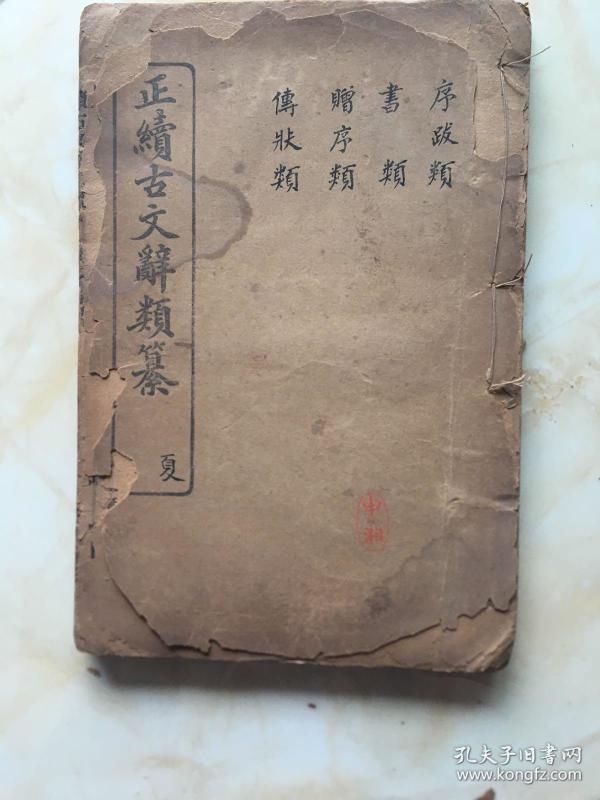 序跋類
書類
贈序類
傳狀類
正續古文辭類纂
夏
孔夫子旧書网
www.kongfz.com